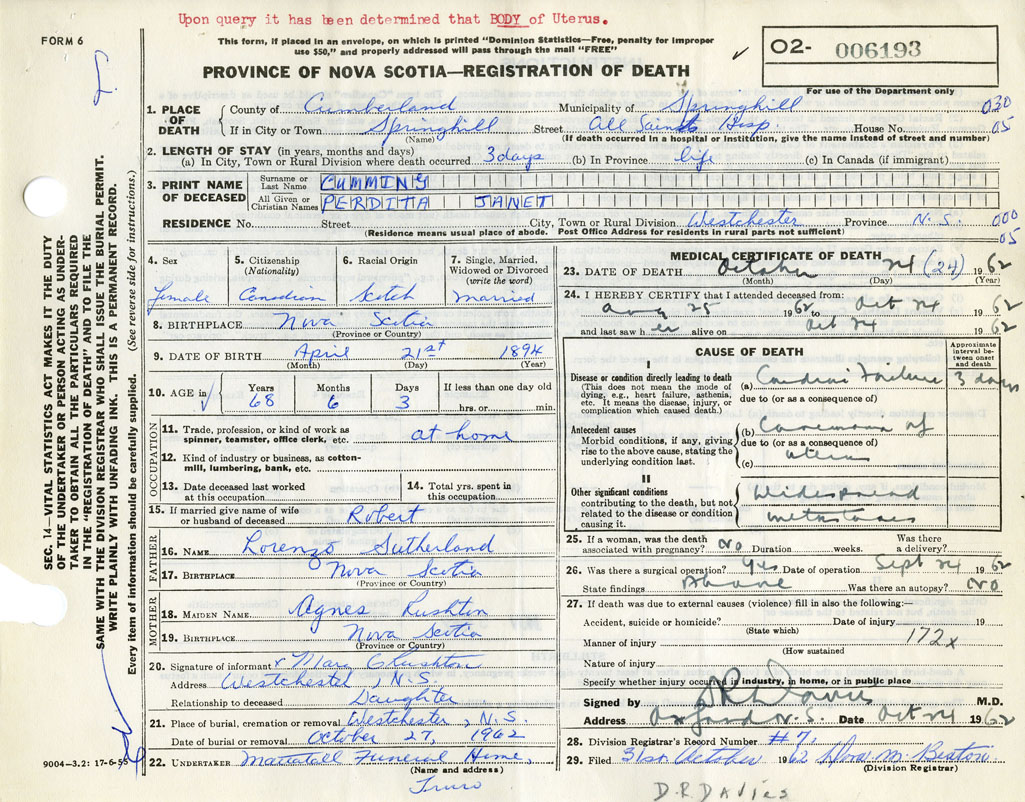 Upon query it has been determined that BODY of Uterus.
FORM 6
This form, if placed in an envelope, on which is printed "Dominion Statistics—Free, penalty for improper
use $50," and properly addressed will pass through the mail "FREE"
PROVINCE OF NOVA SCOTIA—REGISTRATION OF DEATH
O2- 006193
For use of the Department only
1. PLACE OF DEATH County of Cumberland Municipality of Springhill 030
If in City or Town Springhill Street All Saints Hosp House No. 05
(Name) (If death occurred in a hospital or institution, give the name instead of street and number)
2. LENGTH OF STAY (in years, months and days)
(a) In City, Town or Rural Division where death occurred 3 days (b) In Province life (c) In Canada (if immigrant)
3. PRINT NAME OF DECEASED Surname or Last Name CUMMING
All Given or Christian Names PERDITTA JANET
RESIDENCE No. Street City, Town or Rural Division Westchester Province N.S. 000
(Residence means usual place of abode. Post Office Address for residents in rural parts not sufficient) 05
4. Sex female
5. Citizenship (Nationality) Canadian
6. Racial Origin Scotch
7. Single, Married, Widowed or Divorced (write the word) Married
8. BIRTHPLACE Nova Scotia
(Province or Country)
9. DATE OF BIRTH April 21st 1894
(Month) (Day) (Year)
10. AGE in Years 68 Months 6 Days 3 If less than one day old
hrs. or min.
OCCUPATION
11. Trade, profession, or kind of work as
spinner, teamster, office clerk, etc. at home
12. Kind of industry or business, as cotton-
mill, lumbering, bank, etc.
13. Date deceased last worked
at this occupation
14. Total yrs. spent in
this occupation
15. If married give name of wife
or husband of deceased Robert
FATHER
16. NAME Lorenzo Sutherland
17. BIRTHPLACE Nova Scotia
(Province or Country)
MOTHER
18. MAIDEN NAME Agnes Rushton
19. BIRTHPLACE Nova Scotia
(Province or Country)
20. Signature of informant x
Address Westchester, N.S.
Relationship to deceased Daughter
21. Place of burial, cremation or removal Westchester, N.S.
Date of burial or removal October 27, 1962
22. UNDERTAKER Mattatall Funeral Home,
(Name and address)
Truro
9004—3.2: 17-6-55
SEC. 14—VITAL STATISTICS ACT MAKES IT THE DUTY
OF THE UNDERTAKER OR PERSON ACTING AS UNDER-
TAKER TO OBTAIN ALL THE PARTICULARS REQUIRED
IN THE "REGISTRATION OF DEATH" AND TO FILE THE
SAME WITH THE DIVISION REGISTRAR WHO SHALL ISSUE THE BURIAL PERMIT.
WRITE PLAINLY WITH UNFADING INK. THIS IS A PERMANENT RECORD.
Every item of information should be carefully supplied. (See reverse side for instructions.)
MEDICAL CERTIFICATE OF DEATH
23. DATE OF DEATH October 24 (24) 1962
(Month) (Day) (Year)
24. I HEREBY CERTIFY that I attended deceased from:
Aug 25 1962 to Oct 24 1962
and last saw h er alive on Oct 24 1962
CAUSE OF DEATH
Approximate interval be-tween onset and death
I
Disease or condition directly leading to death
(This does not mean the mode of
dying, e.g., heart failure, asthenia,
etc. It means the disease, injury, or
complication which caused death.)
(a) Cardiac Failure 3 days
due to (or as a consequence of)
Antecedent causes
Morbid conditions, if any, giving
rise to the above cause, stating the
underlying condition last.
(b) Carcinoma of
due to (or as a consequence of)
(c) uterus
II
Other significant conditions
contributing to the death, but not
related to the disease or condition
causing it.
Widespread
metastases
25. If a woman, was the death
associated with pregnancy? No Duration weeks. Was there
a delivery?
26. Was there a surgical operation? yes Date of operation Sept 24 1962
State findings Above Was there an autopsy? No
27. If death was due to external causes (violence) fill in also the following:—
Accident, suicide or homicide? Date of injury 19
(State which)
Manner of injury 172x
(How sustained
Nature of injury
Specify whether injury occured in industry, in home, or in public place
Signed by D R Davies M.D.
Address Oxford N.S. Date Oct 24 1962
28. Division Registrar's Record Number #7,
29. Filed 31st October 1962
(Division Registrar)
D.R. DAVIES